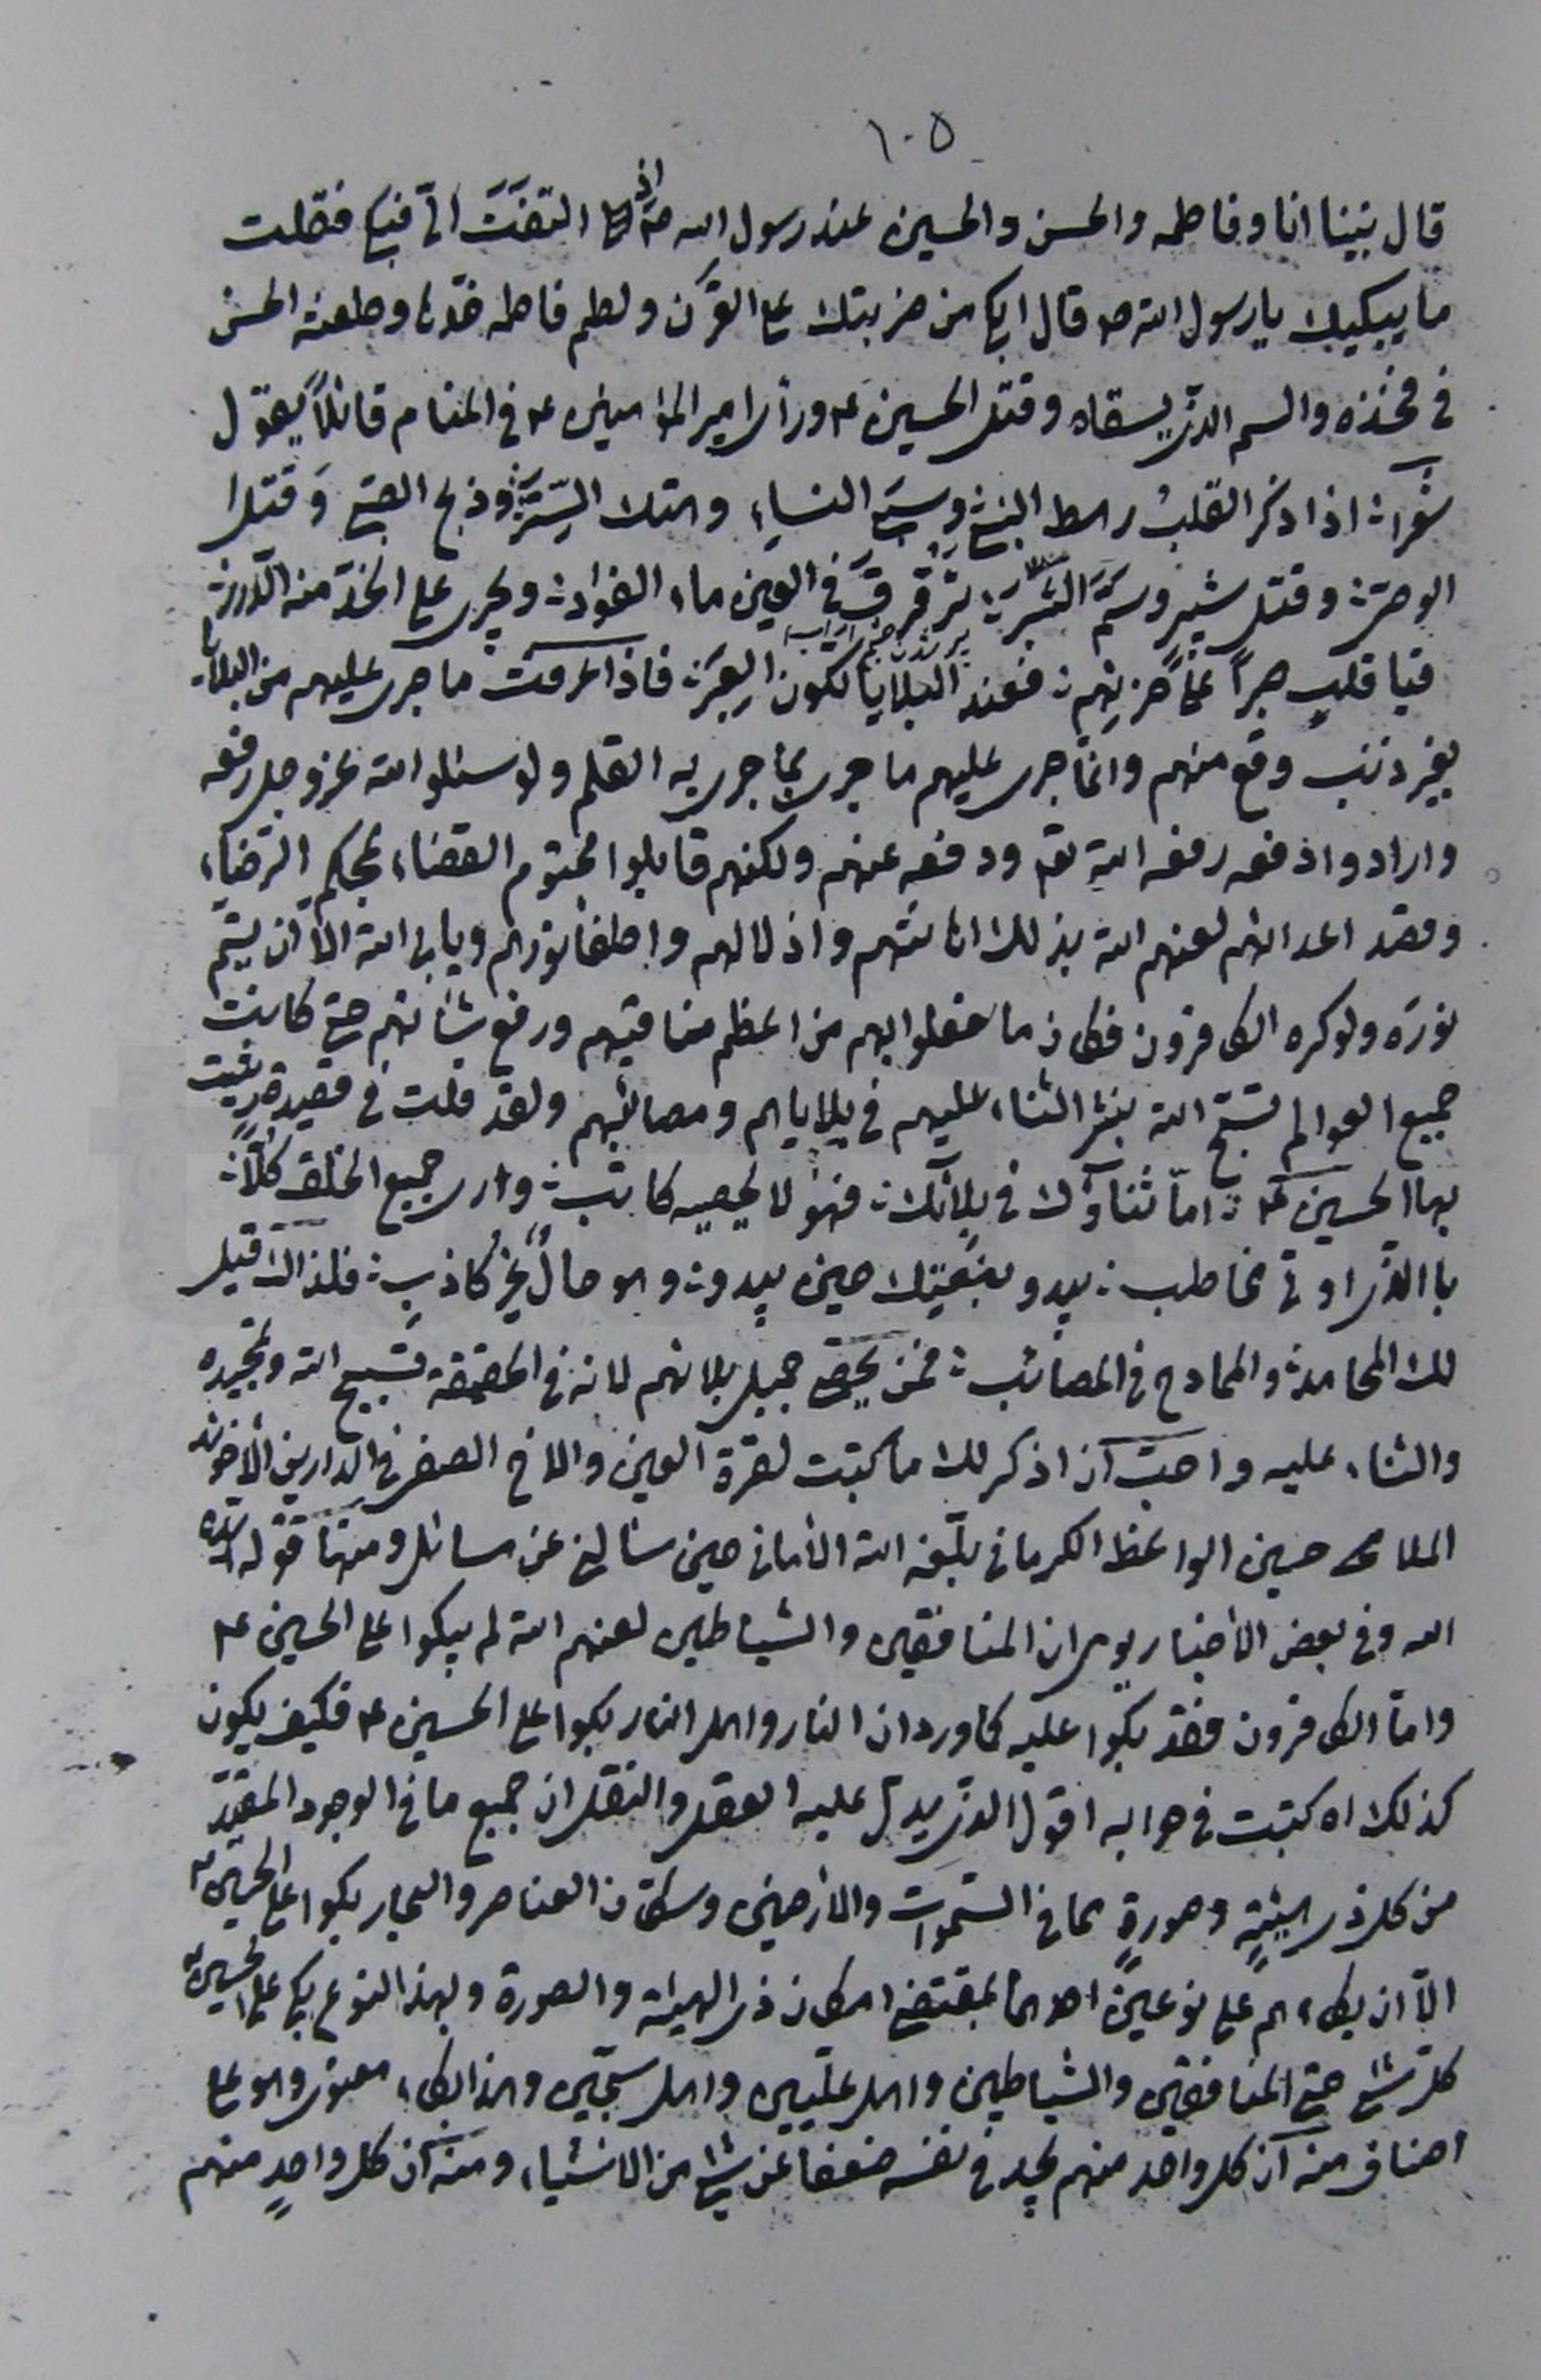 ١٠٥
قال بينا انا وفاطمه والحسن والحسين عند رسول الله ص اذ التفت الیّ فبکی فقلت
ما يبكيك يا رسول الله ص قال ابكي من ضربتك على القرن ولطم فاطمه خدّها وطعنه الحسن
في فخذه والسم الذي يسقاه وقتل الحسين ع ورأى امير المؤمنين ع في المنام قائلاً يقول
شعراً اذا ذكر القلب رهط النبي وسبي النساء وهتك الستر وذبح الصبي وقتل
الوصي وقتل شبير وسمّ الشبر ترقرق في العين ماء الفؤاد ويجري على الخدّ منه الدرر
فيا قلب صبراً على حزنهم فعند البلايا تكون العبر فاذا عرفت ما جرى عليهم من البلايا
بغير ذنب وقع منهم وانما جرى عليهم ما جرى بما جرى به القلم ولو سئلوا الله عز وجل رفعه
وارادوا دفعه رفعه الله تع ودفعه عنهم ولكنهم قابلوا محتوم القضاء بمحكم الرضاء
وقصد اعدائهم لعنهم الله بذلك اهانتهم واذلالهم واطفأ نورهم ويابى الله الا ان يتم
نوره ولو كره الكافرون فكان ما فعلوا بهم من اعظم مناقبهم ورفع شأنهم حتى كانت
جميع العوالم تسبّح الله بنشر الثناء عليهم في بلاياهم ومصائبهم ولقد قلت في قصيدة رثيت
بها الحسين ع امّا ثناؤك في بلائك فهو لا يحصيه كاتب وارى جميع الخلق كلّا
با الذي اوتي مخاطب يبدو بنعيك حين يبدو وهو حالٌ غير كاذب فلذاك قيل
لك المحامد والممادح في المصائب فمن يحصي جميل بلائهم لانه في الحقيقة تسبيح الله وتمجيده
والثناء عليه واحب ان اذكر لك ما كتبت لقرة العين والاخ الصفي في الدارين الآخوند
الملا محمد حسين الواعظ الكرماني بلّغه الله الأماني حين سئالني عن مسائل ومنها قوله ايّده
الله وفي بعض الأخبار يومى ان المنافقين والشياطين لعنهم الله لم يبكوا على الحسين ع
وامّا الكافرون فقد بكوا عليه كما ورد ان النار واهل النار بكوا على الحسين ع فكيف يكون
كذلك اه كتبت في جوابه اقول الذي يدل عليه العقل والنقل ان جميع ما في الوجود المقيّد
من كل ذي هيئةٍ وصورةٍ مما في السموات والأرضين وسكان العناصر والبحار بكوا على الحسين ع
الّا ان بكاءهم على نوعين احدهما بمقتضى امكان ذي الهيئة والصورة وبهذا النوع بكى على الحسين ع
كلّ شئ حتى المنافقين والشياطين واهل علّيين واهل سجّين وهذا البكاء معنوي وهو على
اصناف منه انّ كل واحد منهم يجد في نفسه ضعفاً عن شئ من الاشياء ومنه انّ كل واحدٍ منهم